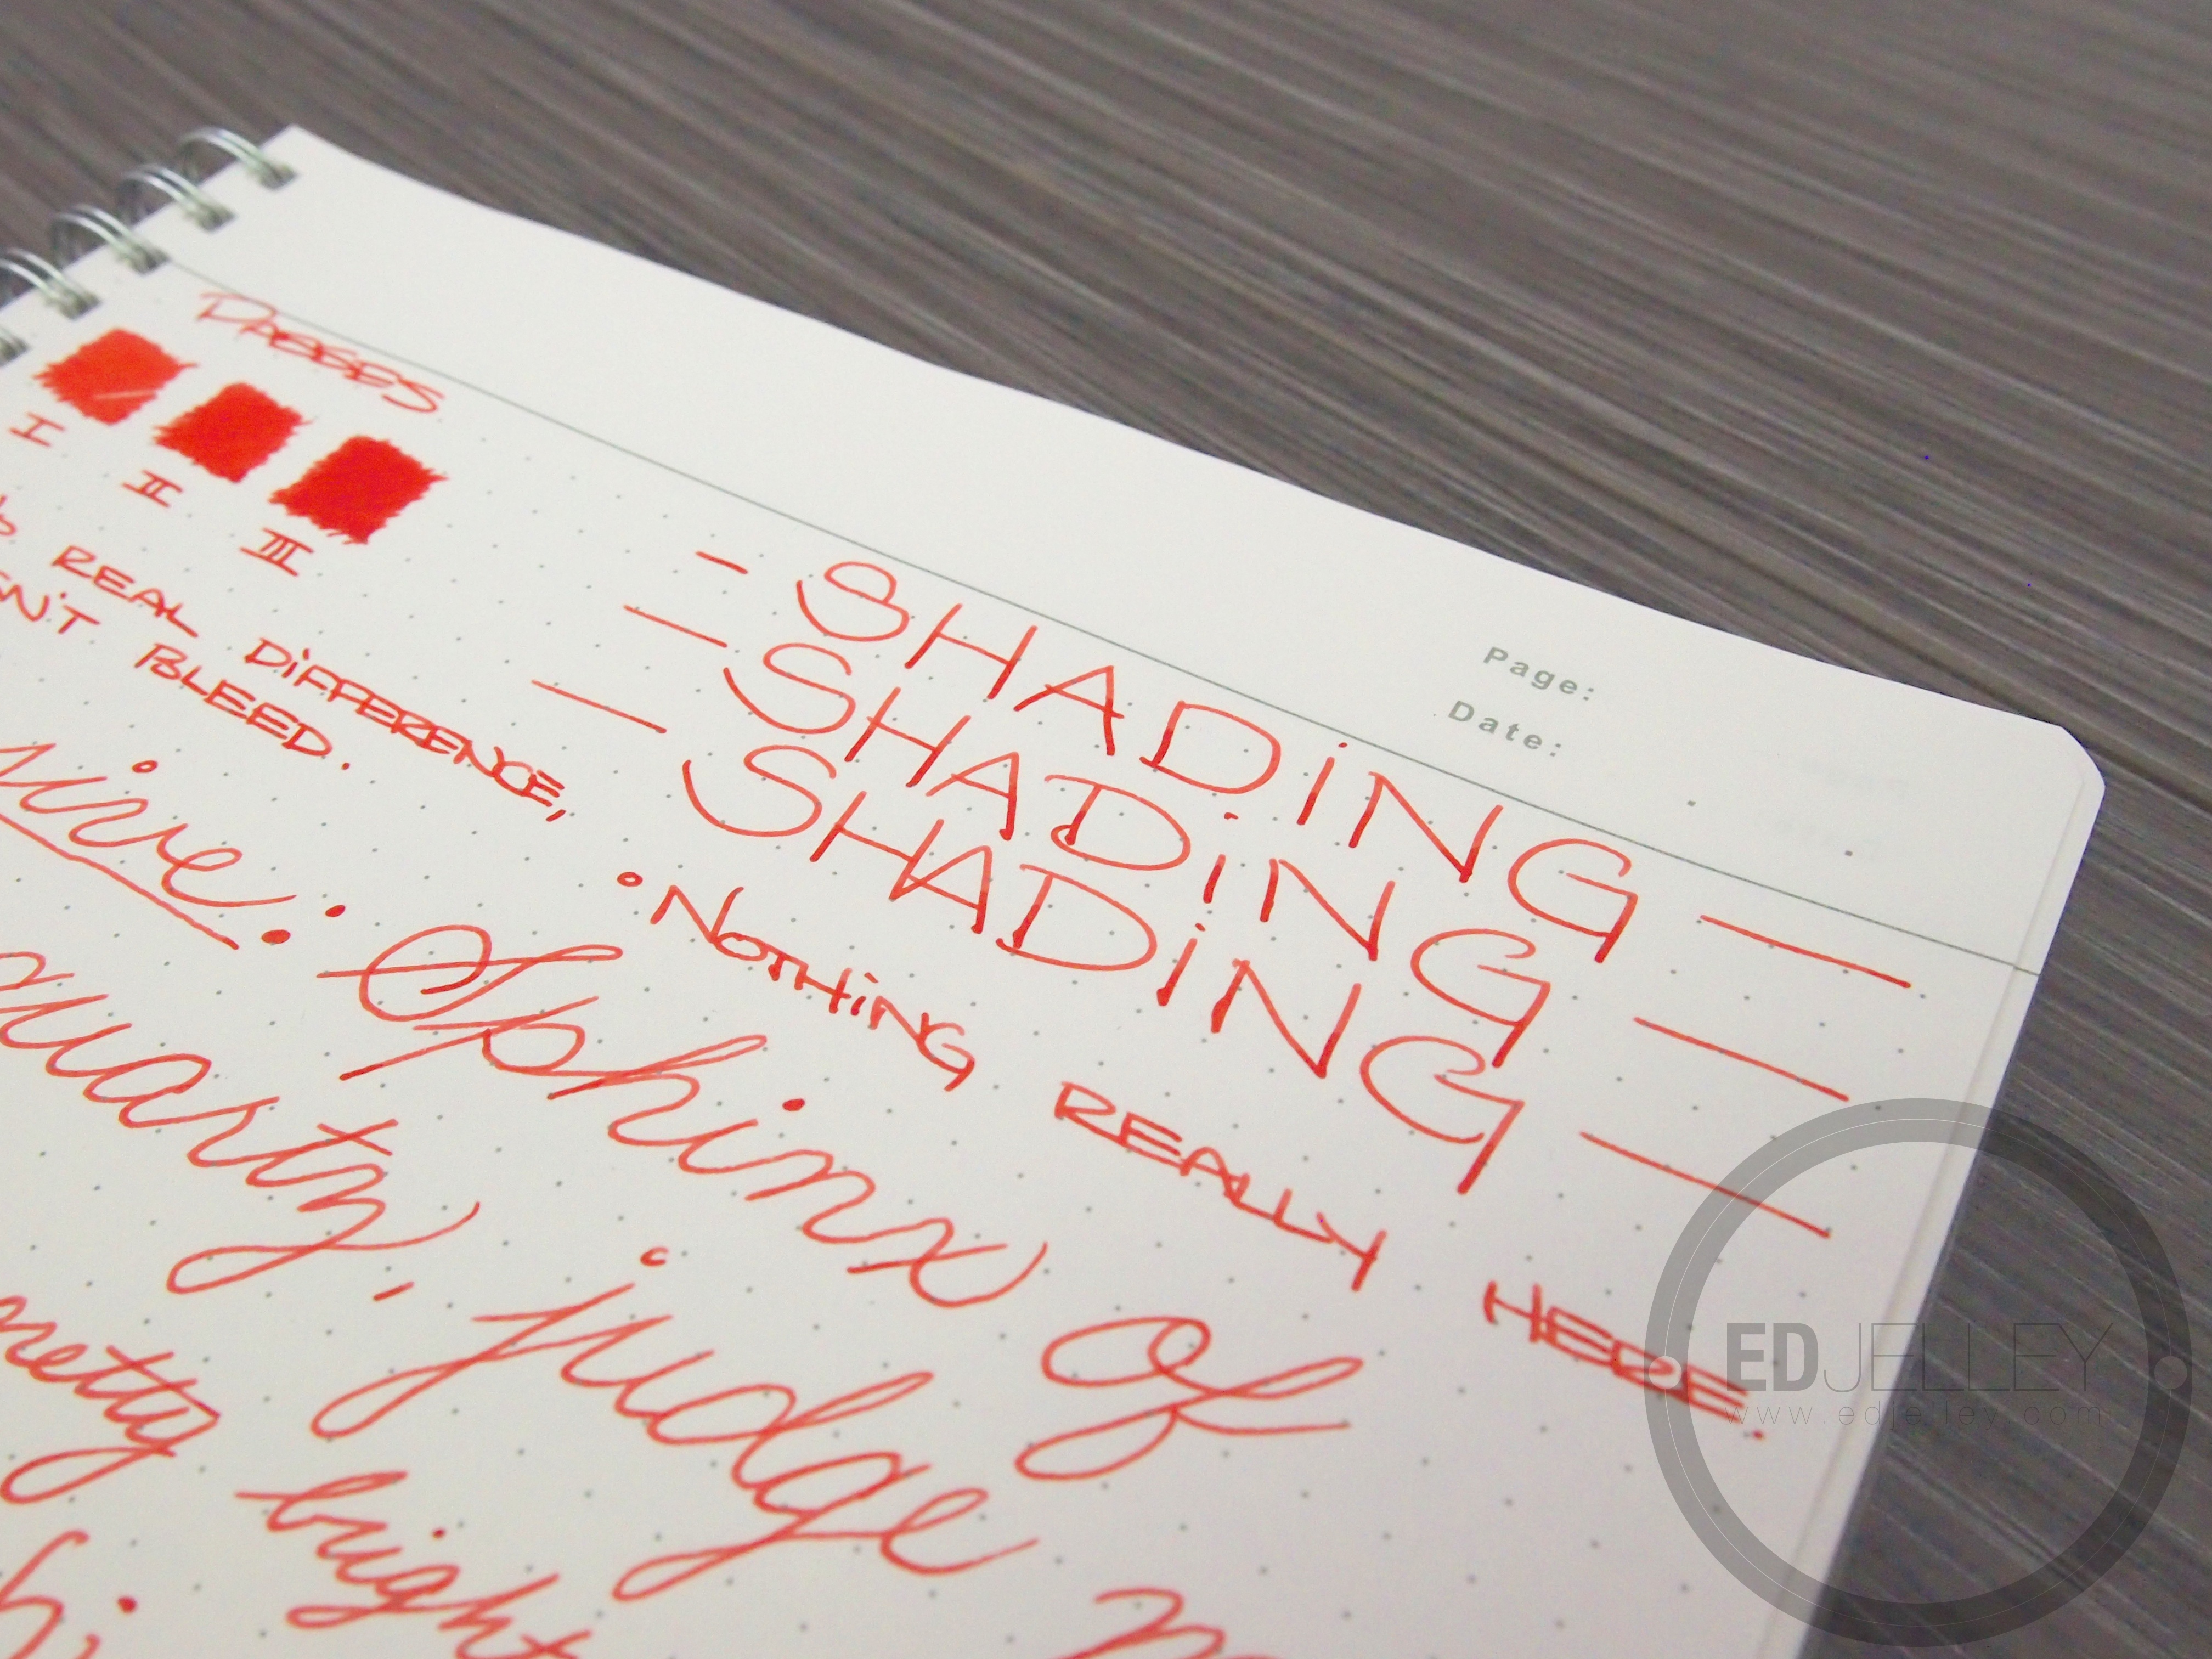 Page:
Date:
PASSES
I II III
REAL DIFFERENCE,
BLEED.
- SHADING -
- SHADING -
- SHADING -
• NOTHING REALLY HERE.
: Sphinx of
quartz, judge
pretty bright
EDJELLEY
www.edjelley.com